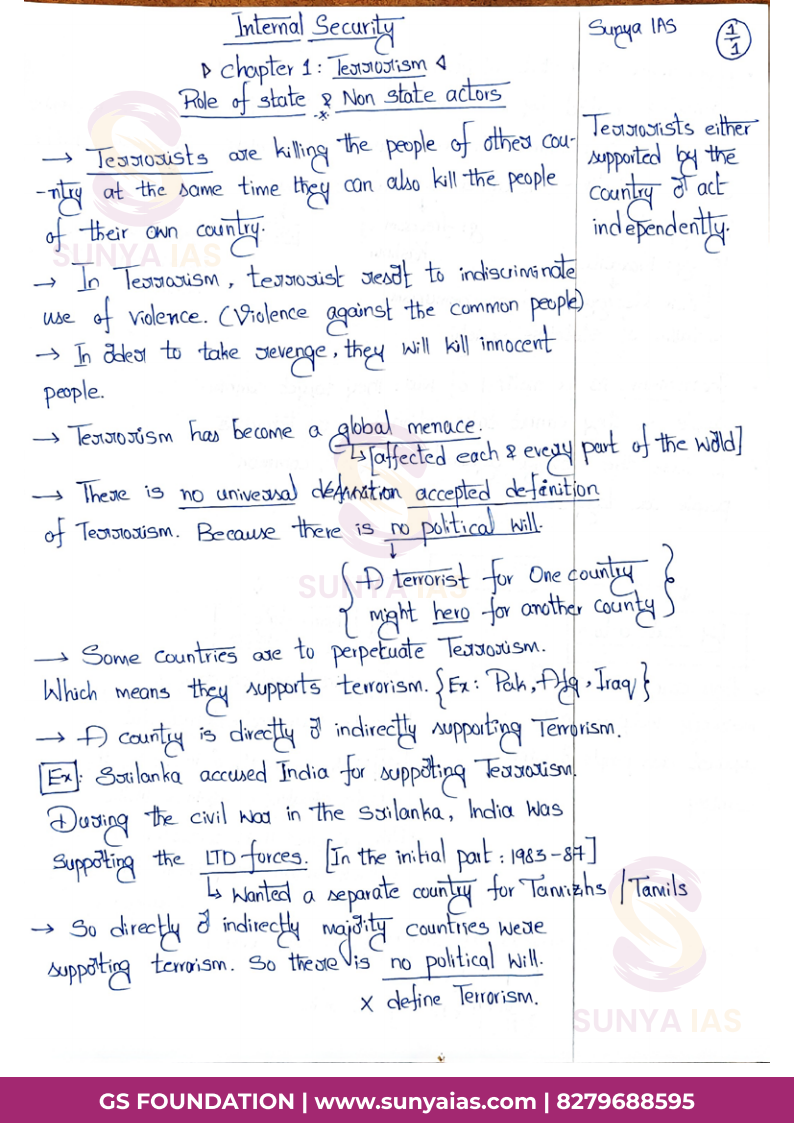 Internal Security
Sunya IAS
1/1
▷ Chapter 1: Terrorism ◁
Role of state & Non state actors
→ Terrorists are killing the people of other cou-
-ntry at the same time they can also kill the people
of their own country.
Terrorists either
supported by the
country or act
independently.
→ In Terrorism, terrorist resort to indiscriminate
use of violence. (Violence against the common people)
→ In order to take revenge, they will kill innocent
people.
→ Terrorism has become a global menace.
↳ [affected each & every part of the world]
→ There is no universal accepted definition
of Terrorism. Because there is no political will.
↓
{ A terrorist for One country }
{ might hero for another county }
→ Some countries are to perpetuate Terrorism.
Which means they supports terrorism. {Ex: Pak, Afg, Iraq}
→ A country is directly or indirectly supporting Terrorism.
Ex: Srilanka accused India for supporting Terrorism.
During the civil war in the Srilanka, India was
Supporting the LTD forces. [In the initial part: 1983-87]
↳ Wanted a separate country for Tamizhs / Tamils
→ So directly or indirectly majority countries were
supporting terrorism. So there is no political will.
x define Terrorism.
SUNYA IAS
SUNYA IAS
SUNYA IAS
GS FOUNDATION | www.sunyaias.com | 8279688595